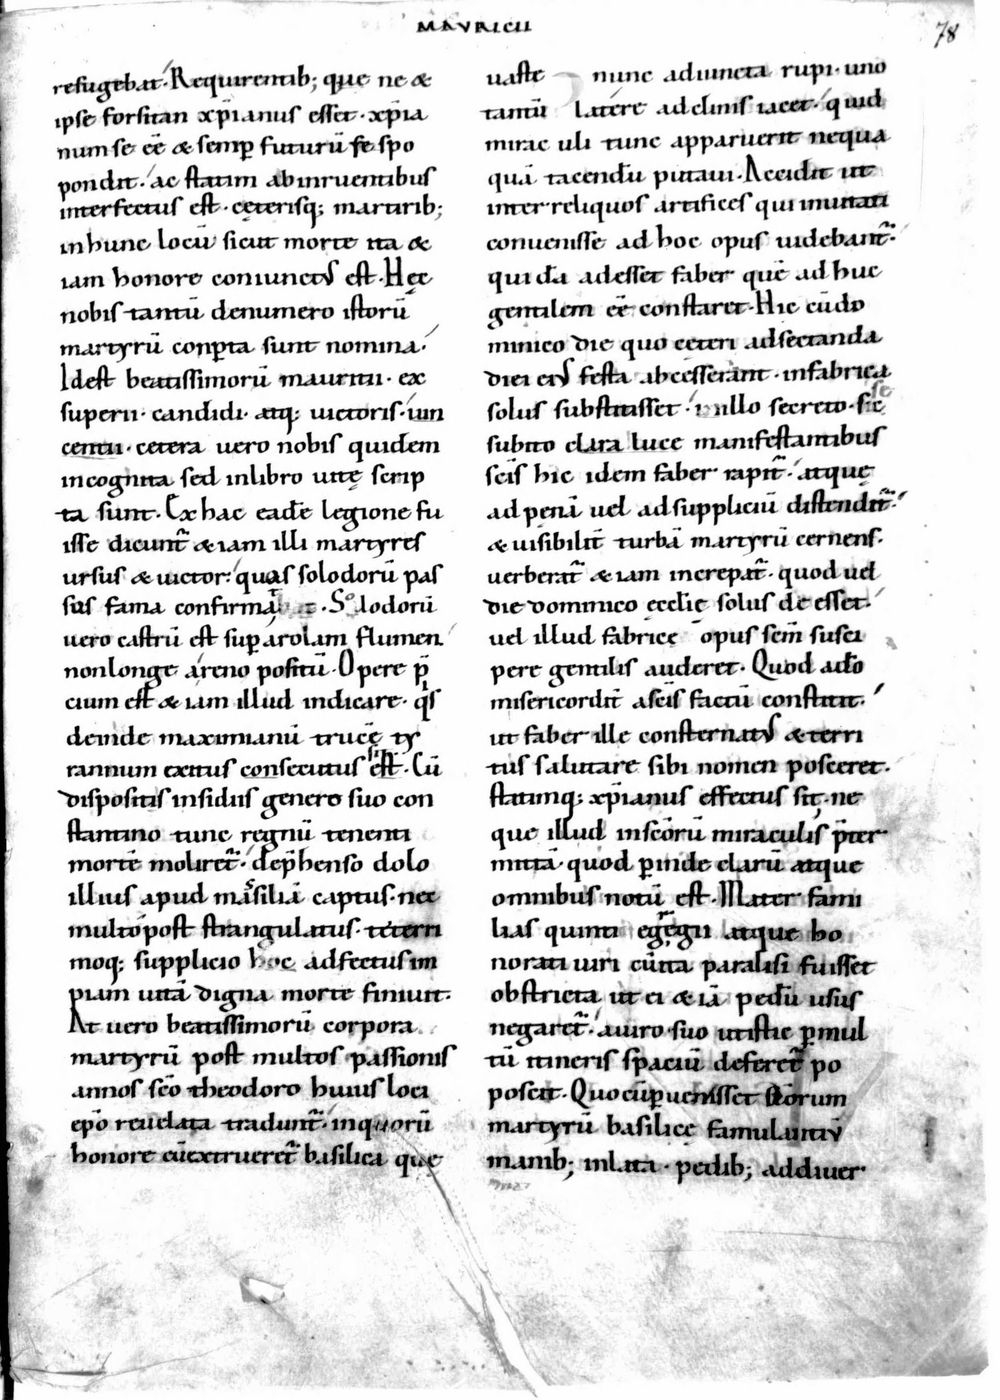 MAVRICII
78
refugebat. Requirentib; que ne &
ipse forsitan xp̄ianus esset. xp̄ia
num se eē & semp futurū se spo
pondit. ac statim ab inruentibus
interfectus est. cęterisq; martirib;
in hunc locū sicut morte ita &
iam honore coniunctus est. Hęc
nobis tantū de numero istorū
martyrū conpta sunt nomina.
Id est beatissimorū mauritii. ex
superii. candidi. atq; uictoris. uin
centii. cetera uero nobis quidem
incognita sed in libro uitę scrip
ta sunt. Ex hac eadē legione fu
isse dicunt̄ & iam illi martyres
ursus & uictor. quas solodorū pas
sus fama confirmat. Solodorū
uero castrū est sup arolam flumen
non longe a reno positū. Opere p̄
cium est & iam illud indicare. qs
deinde maximianū trucę ty
rannum exitus consecutus sit. Cū
dispositis insidiis genero suo con
stantino tunc regnū tenenti
mortē moliret̄. dep̄henso dolo
illius apud masiliā captus. nec
multo post strangulatus. teterri
moq; supplicio hoc adfectus im
piam uitā digna morte finiuit.
At uero beatissimorū corpora
martyrū post multos passionis
annos sc̄o theodoro huius loci
ep̄o reuelata tradunt̄. in quorū
honore cū extrueret̄ basilica que
uastę nunc adiuncta rupi. uno
tantū latere adclinis iacet. quid
miraculi tunc apparuerit nequa
quā tacendū putaui. Accidit ut
inter reliquos artifices qui inuitati
conuenisse ad hoc opus uidebant̄.
quidā adesset faber quē ad huc
gentilem eē constaret. Hic cū do
minico die quo ceteri ad sectanda
diei eius festa abcesserant. in fabrica
solus substitisset. in illo secreto. se
subito clara luce manifestantibus
sc̄is hic idem faber rapit̄. atque
ad penā uel ad suppliciū distendit̄.
& uisibilit̄ turbā martyrū cernens.
uerberat̄ & iam increpat̄. quod uel
die dominico ecclie solus de esset.
uel illud fabricę opus sc̄m susci
pere gentilis auderet. Quod adō
misericordit̄ a sc̄is factū constitit.
ut faber ille consternatus & terri
tus salutare sibi nomen posceret.
statimq; xp̄ianus effectus sit. ne
que illud in sc̄orū miraculis p̄ter
mittā quod pinde clarū atque
omnibus notū est. Mater fami
lias quinti egregii atque ho
norati uiri cū ita paralisi fuisset
obstricta ut ei & iā pedū usus
negaret̄. a uiro suo ut istic p mul
tū itineris spaciū deferet̄ po
poscit. Quo cū puenisset sc̄orum
martyrū basilicę famulantiū
manib; inlata. pedib; ad diuer